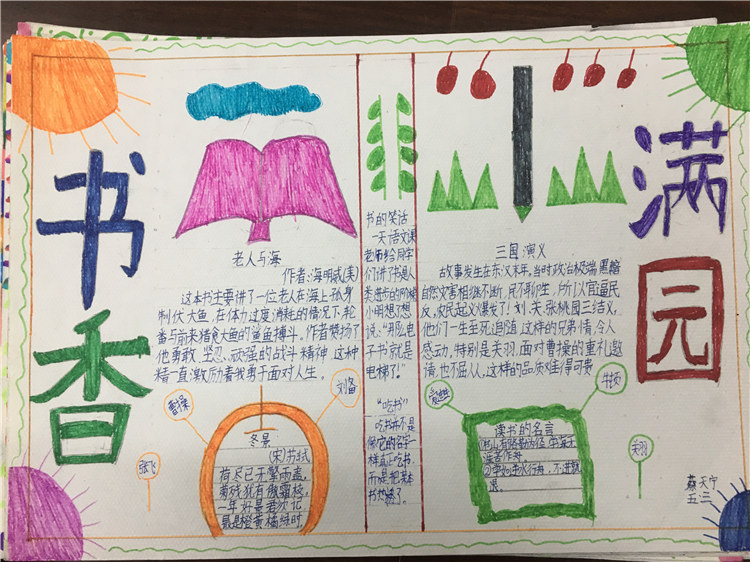 书香
满园
老人与海
作者:海明威(美)
这本书主要讲了一位老人在海上孤身
制伏大鱼,在体力过度消耗的情况下,轮
番与前来猎食大鱼的鲨鱼搏斗。作者赞扬了
他勇敢、坚忍、顽强的战斗精神 这种
精一直激励着我勇于面对人生。
书的笑话
一天语文课
老师给同学
们讲了书是人
类进步的阶梯
小明想了想
说:“那么电
子书就是
电梯了!”
“吃书”
吃书并不是
像它的名字一
样真正吃书,
而是把某本
书
三国演义
故事发生在东汉末年,当时政治极端黑暗
自然灾害相继不断,民不聊生,所以官逼民
反,农民起义爆发了!刘、关、张桃园三结义,
他们一生至死追随,这样的兄弟情,令人
感动。特别是关羽,面对曹操的重礼邀
请,也不屈从。这样的品质难得可贵
曹操
刘备
张飞
冬景
(宋)苏轼
荷尽已无擎雨盖,
菊残犹有傲霜枝。
一年好景君须记
最是橙黄橘绿时
关羽
读书的名言
①书山有路勤为径,学海无
涯苦作舟。
蔡天宁
五·三